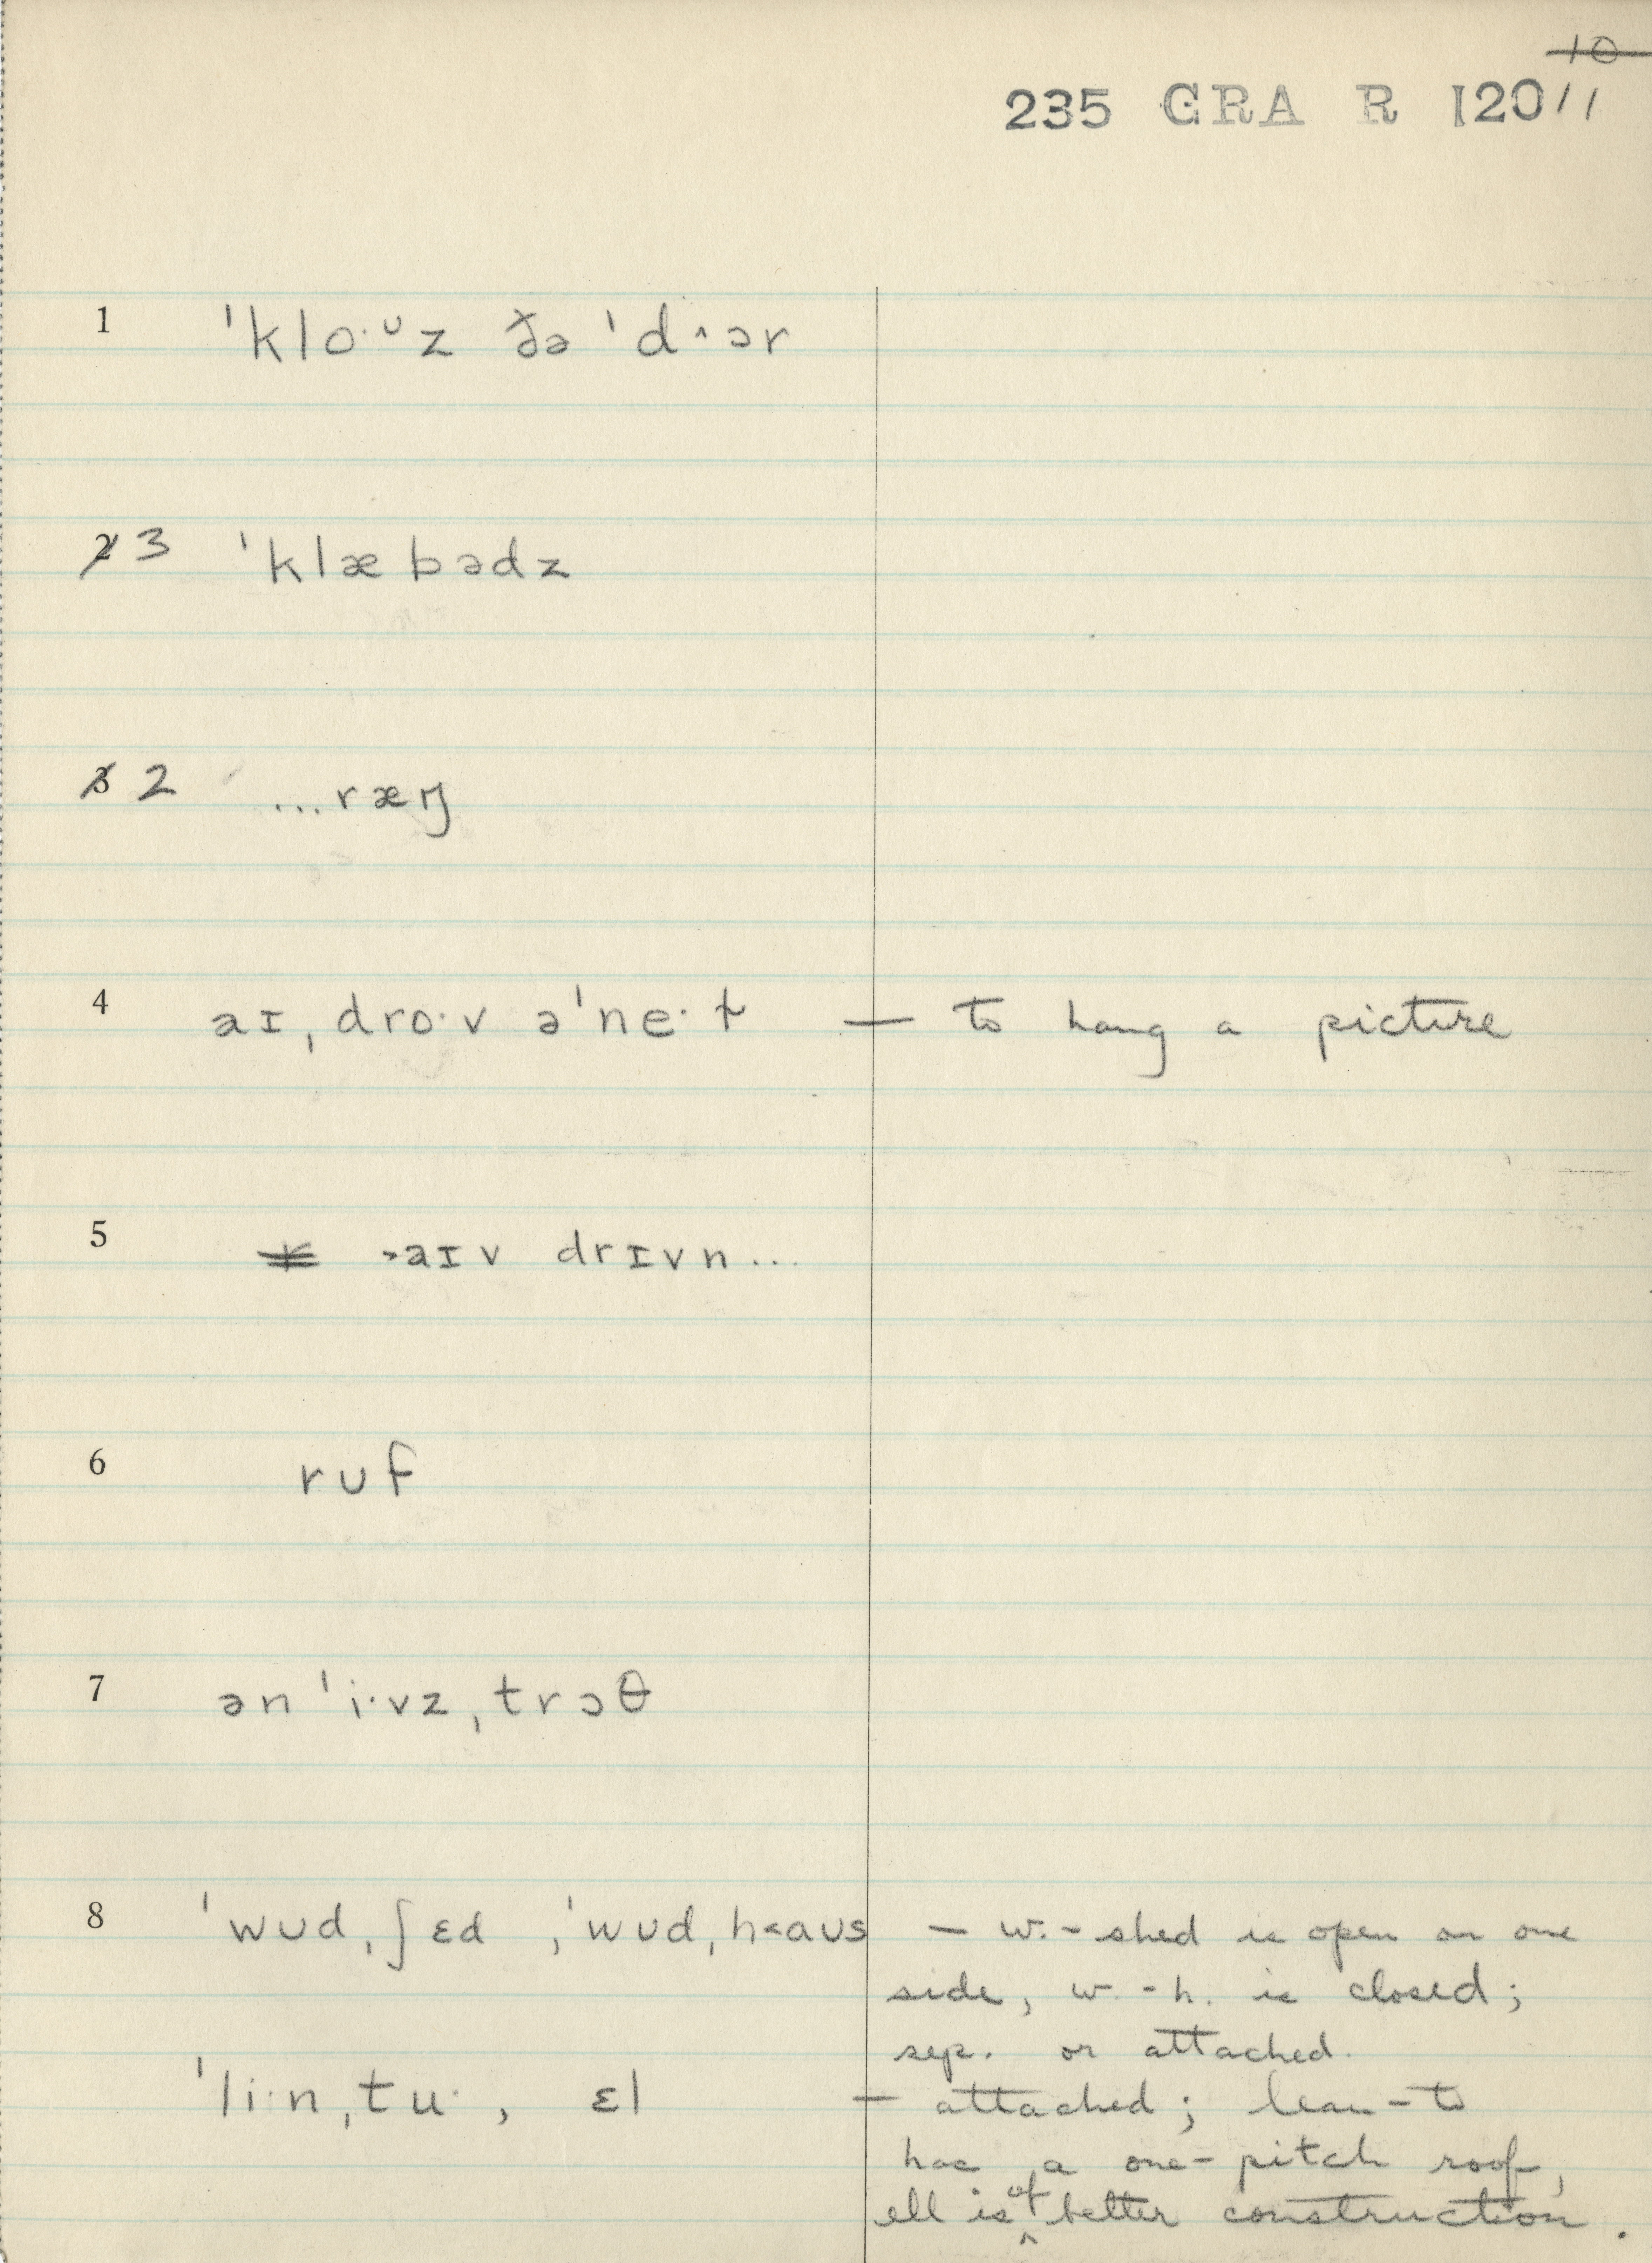 10
235 GRA R I20 11
1 ˈkloˑᶷz ðə ˈd^ɔər
2 3 ˈklæbədz
3 2 ...ræŋ
4 aɪˌdroˑv əˈneˑɫ — to hang a picture
5 >aɪv drɪvn...
6 ruf
7 ən ˈiˑvzˌtrɔθ
8 ˈwʊdˌʃɛd , ˈwʊdˌh<aʊs — w.-shed is open on one
side, w.-h. is closed;
sep. or attached.
ˈliˑnˌtuˑ, ɛl — attached; lean-to
has a one-pitch roof,
ell is of better construction.